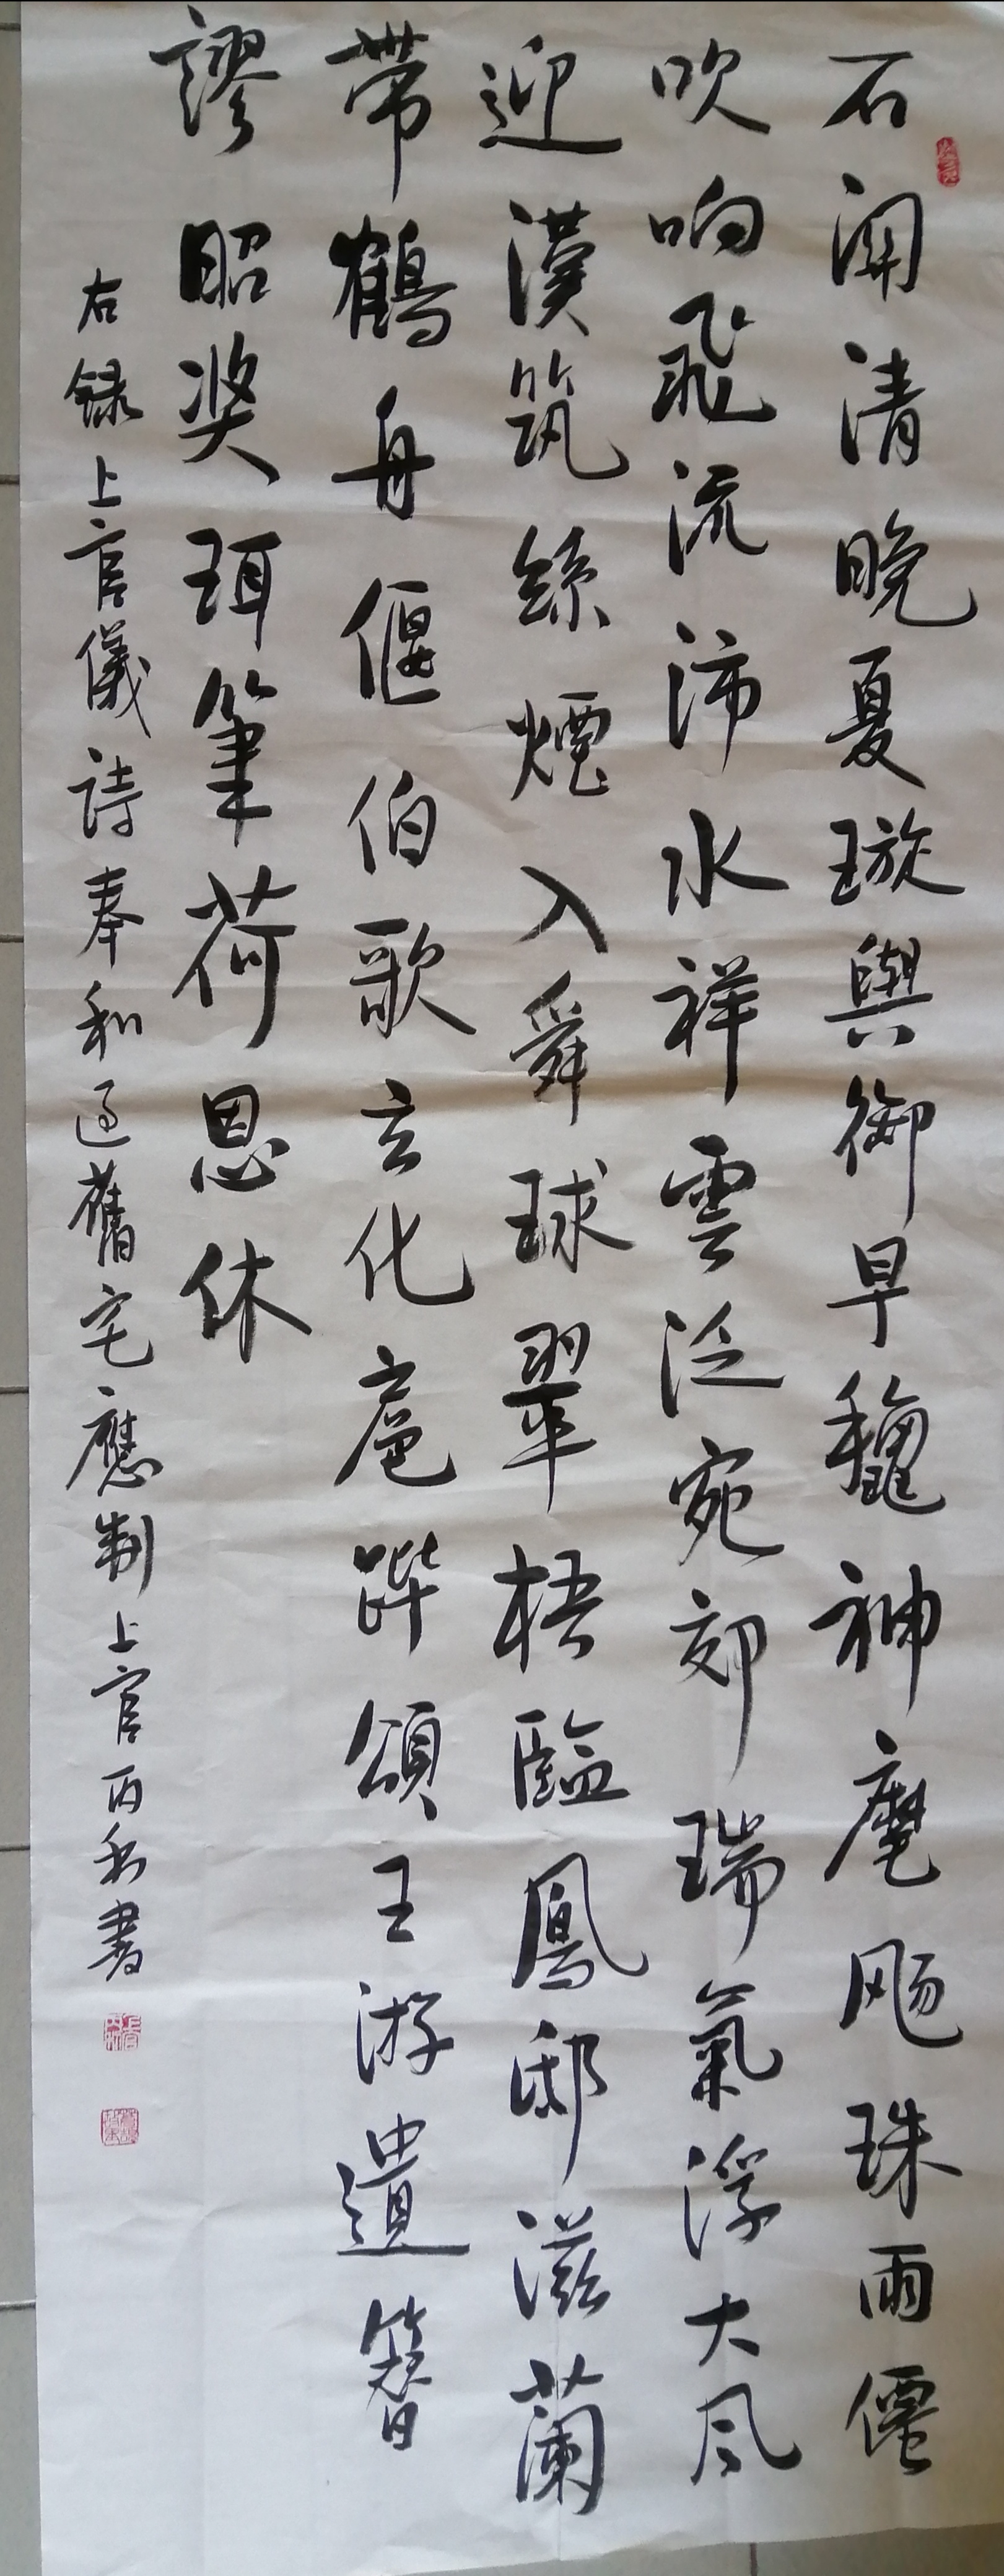 石関清晚夏璇輿御早龝神麾飏珠雨僊
吹响飛流沛水祥雲泛宛郊瑞氣浮大风
迎漢筑煙入舜球翠梧臨鳳邸滋蘭
帶鶴舟偃伯歌玄化扈蹕頌王游遺簪
謬昭奖珥筆荷恩休
右録上官儀詩奉和過舊宅應制上官丙書